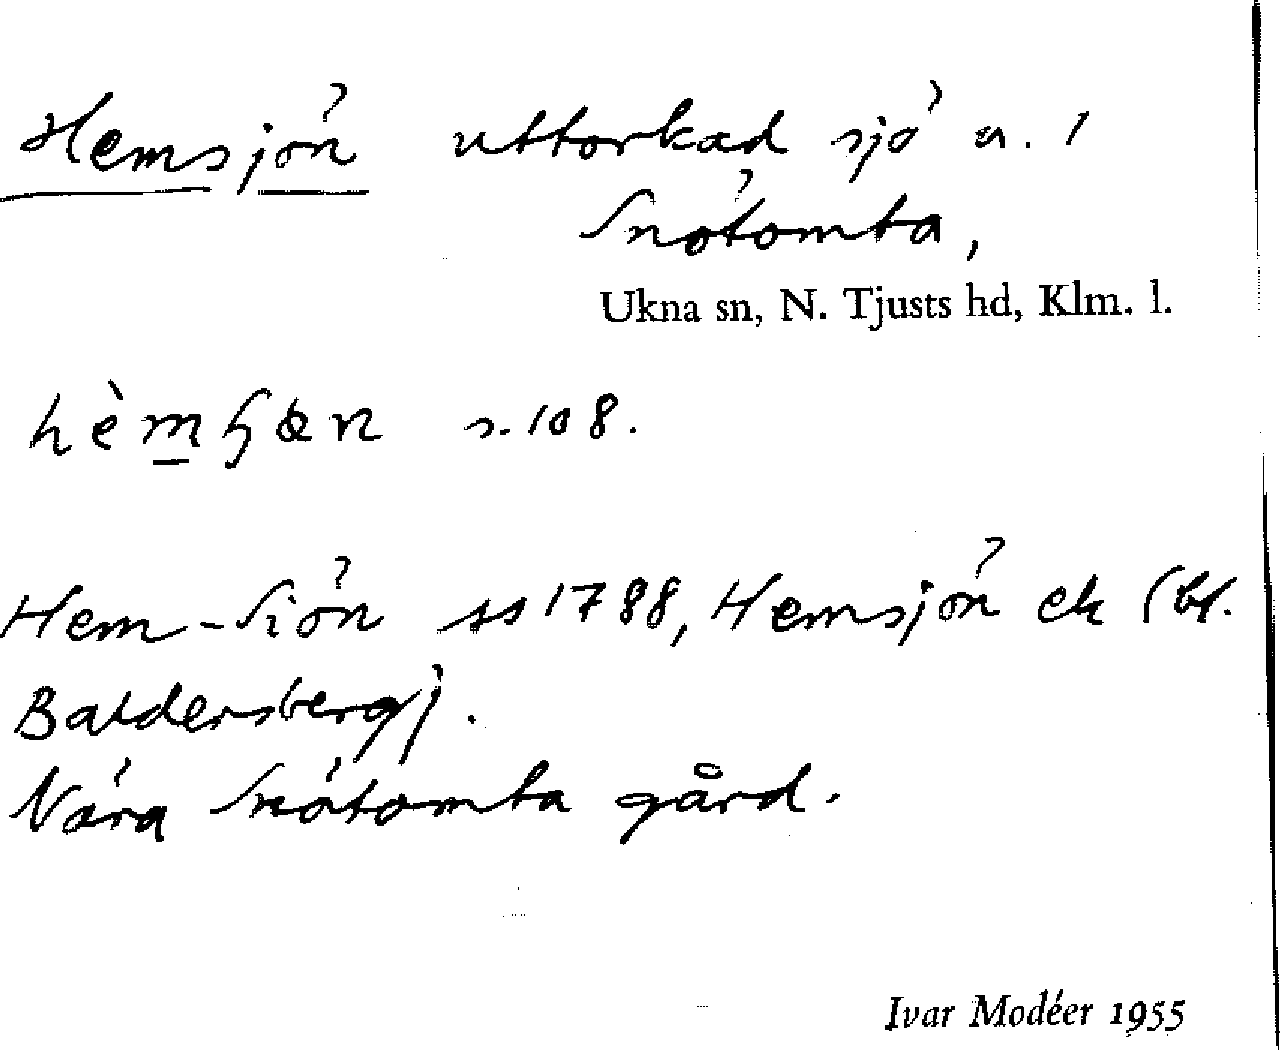 Hemsjön uttorkad sjö u. 1
Snötomta,
Ukna sn, N. Tjusts hd, Klm. l.
s. 108.
Hem-Siön ss 1788, Hemsjön ek (bl.
Baldersberg).
Nära Snötomta gård.
Ivar Modéer 1955